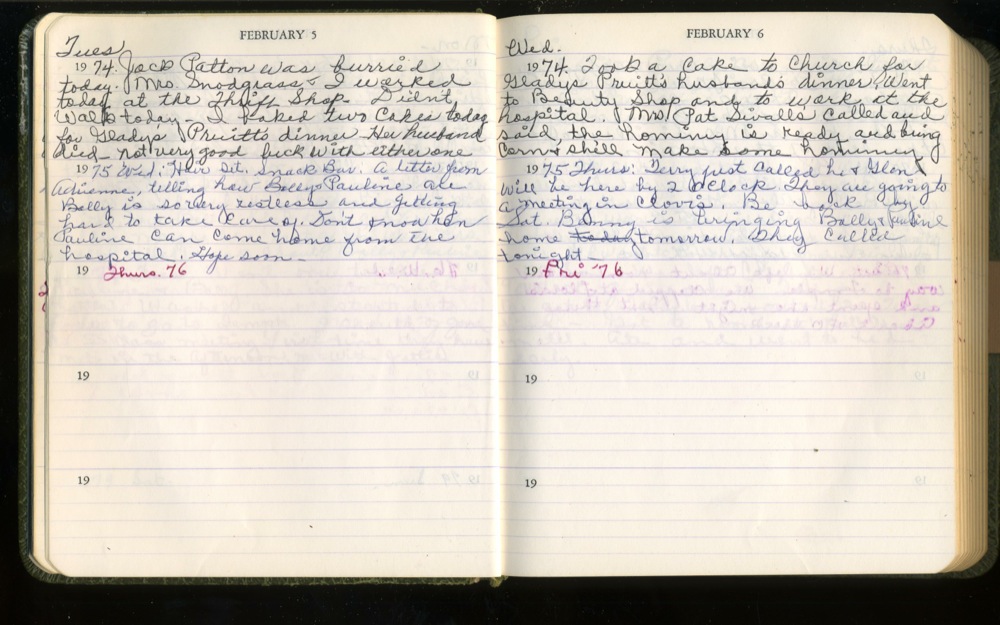 FEBRUARY 5
Tues
1974. Jack Patton was burried
today. Mrs Snodgrass & I worked
today at the Thrift Shop. Didn't
Walk today – I baked two Cakes today
for Gladys Pruitt's dinner. Her husband
died – not very good luck with either one
1975 Wed: Hair Set. Snack Bar. A letter from
Adrienne, telling how Bolly & Pauline are
Bolly is so very restless and getting
hard to take care of. Don't know when
Pauline can come home from the
hospital. Hope soon –
19 Thurs. 76
19
19
FEBRUARY 6
Wed.
1974. Took a Cake to Church for
Gladys Pruitt's husband's dinner. Went
to Beauty Shop and to work at the
hospital. Mrs Pat Divalls called and
said, the hominy is ready and bring
Corn & shell make some hominy
1975 Thurs: Terry just called he & Glen
will be here by 2 oclock. They are going to
a meeting in Clovis. Be back by
Sat. Benny is bringing Bolly & Pauline
home today tomorrow. They called
tonight –
19 Fri '76
19
19